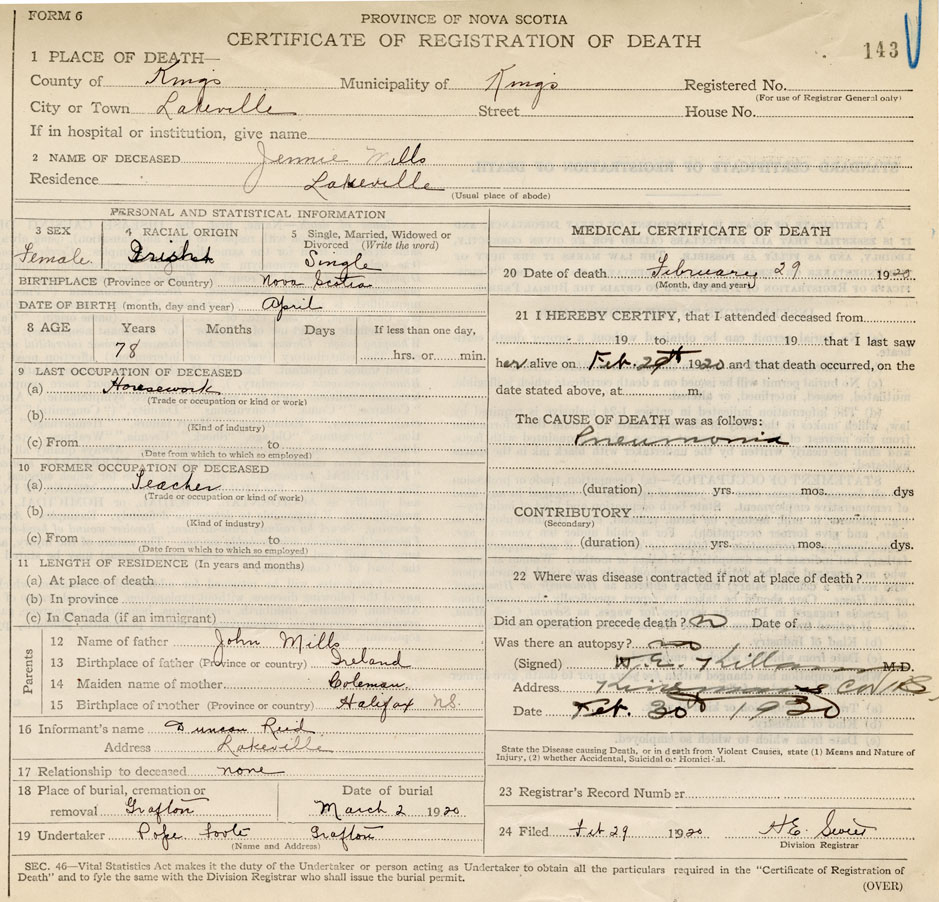 FORM 6
PROVINCE OF NOVA SCOTIA
CERTIFICATE OF REGISTRATION OF DEATH
143
1 PLACE OF DEATH—
County of Kings Municipality of Kings Registered No.
(For use of Registrar General only)
City or Town Lakeville Street House No.
If in hospital or institution, give name
2 NAME OF DECEASED Jennie Mills
Residence Lakeville
(Usual place of abode)
PERSONAL AND STATISTICAL INFORMATION
3 SEX 4 RACIAL ORIGIN 5 Single, Married, Widowed or Divorced (Write the word)
Female Irish Single
BIRTHPLACE (Province or Country) Nova Scotia
DATE OF BIRTH (month, day and year) April
8 AGE Years Months Days If less than one day,
78 hrs. or min.
9 LAST OCCUPATION OF DECEASED
(a) Housework
(Trade or occupation or kind or work)
(b)
(Kind of industry)
(c) From to
(Date from which to which so employed)
10 FORMER OCCUPATION OF DECEASED
(a) Teacher
(Trade or occupation or kind of work)
(b)
(Kind of industry)
(c) From to
(Date from which to which so employed)
11 LENGTH OF RESIDENCE (In years and months)
(a) At place of death
(b) In province
(c) In Canada (if an immigrant)
Parents
12 Name of father John Mills
13 Birthplace of father (Province or country) Ireland
14 Maiden name of mother Coleman
15 Birthplace of mother (Province or country) Halifax N.S.
16 Informant's name Duncan Reid
Address Lakeville
17 Relationship to deceased none
18 Place of burial, cremation or removal Grafton
Date of burial March 2 1920
19 Undertaker Pope Foote Grafton
(Name and Address)
MEDICAL CERTIFICATE OF DEATH
20 Date of death February 29 1920
(Month, day and year)
21 I HEREBY CERTIFY, that I attended deceased from
19 to 19 that I last saw
her alive on Feb. 29th 1920 and that death occurred, on the
date stated above, at m.
The CAUSE OF DEATH was as follows:
Pneumonia
(duration) yrs. mos. dys
CONTRIBUTORY
(Secondary)
(duration) yrs. mos. dys.
22 Where was disease contracted if not at place of death?
Did an operation precede death? no Date of
Was there an autopsy? no
(Signed) W.E. M.D.
Address
Date Feb. 30th
State the Disease causing Death, or in death from Violent Causes, state (1) Means and Nature of
Injury, (2) whether Accidental, Suicidal or Homicidal.
23 Registrar's Record Number
24 Filed Feb 29 1920 H.E.
Division Registrar
SEC. 46—Vital Statistics Act makes it the duty of the Undertaker or person acting as Undertaker to obtain all the particulars required in the "Certificate of Registration of
Death" and to fyle the same with the Division Registrar who shall issue the burial permit.
(OVER)